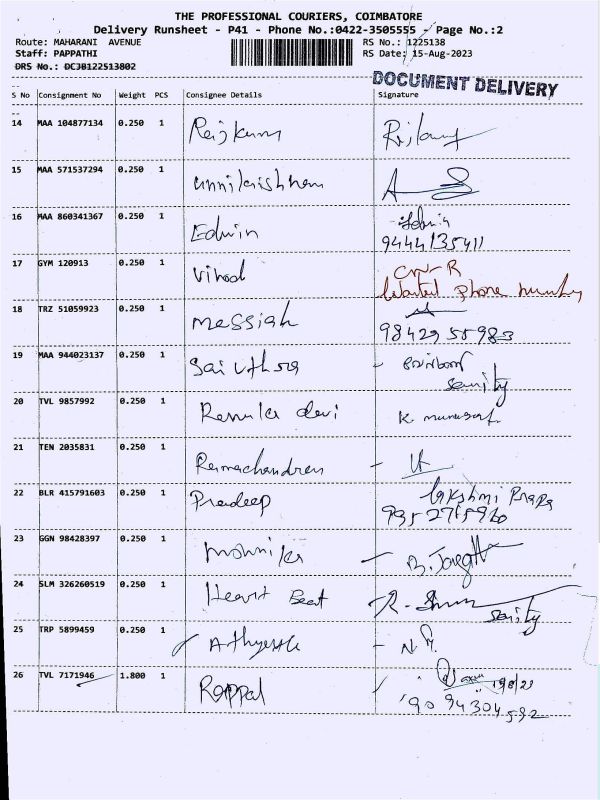 THE PROFESSIONAL COURIERS, COIMBATORE
Delivery Runsheet - P41 - Phone No.:0422-3505555 - Page No.:2
Route: MAHARANI AVENUE RS No.: 1225138
Staff: PAPPATHI RS Date: 15-Aug-2023
DRS No.: DCJB122513802
DOCUMENT DELIVERY
S No Consignment No Weight PCS Consignee Details Signature
14 MAA 104877134 0.250 1 Rajkumar
15 MAA 571537294 0.250 1 unnikrishnan
16 MAA 860341367 0.250 1 Edwin Edwin
9444135411
17 GYM 120913 0.250 1 Vinod
Wanted phone number
18 TRZ 51059923 0.250 1 messiah
9842955983
19 MAA 944023137 0.250 1 Sai
20 TVL 9857992 0.250 1 Renuka devi K
21 TEN 2035831 0.250 1 Ramachandran
22 BLR 415791603 0.250 1 Pradeep Lakshmi
23 GGN 98428397 0.250 1
24 SLM 326260519 0.250 1 Heart Beat R.
25 TRP 5899459 0.250 1 N.
26 TVL 7171946 1.800 1 Rappal
9094304592